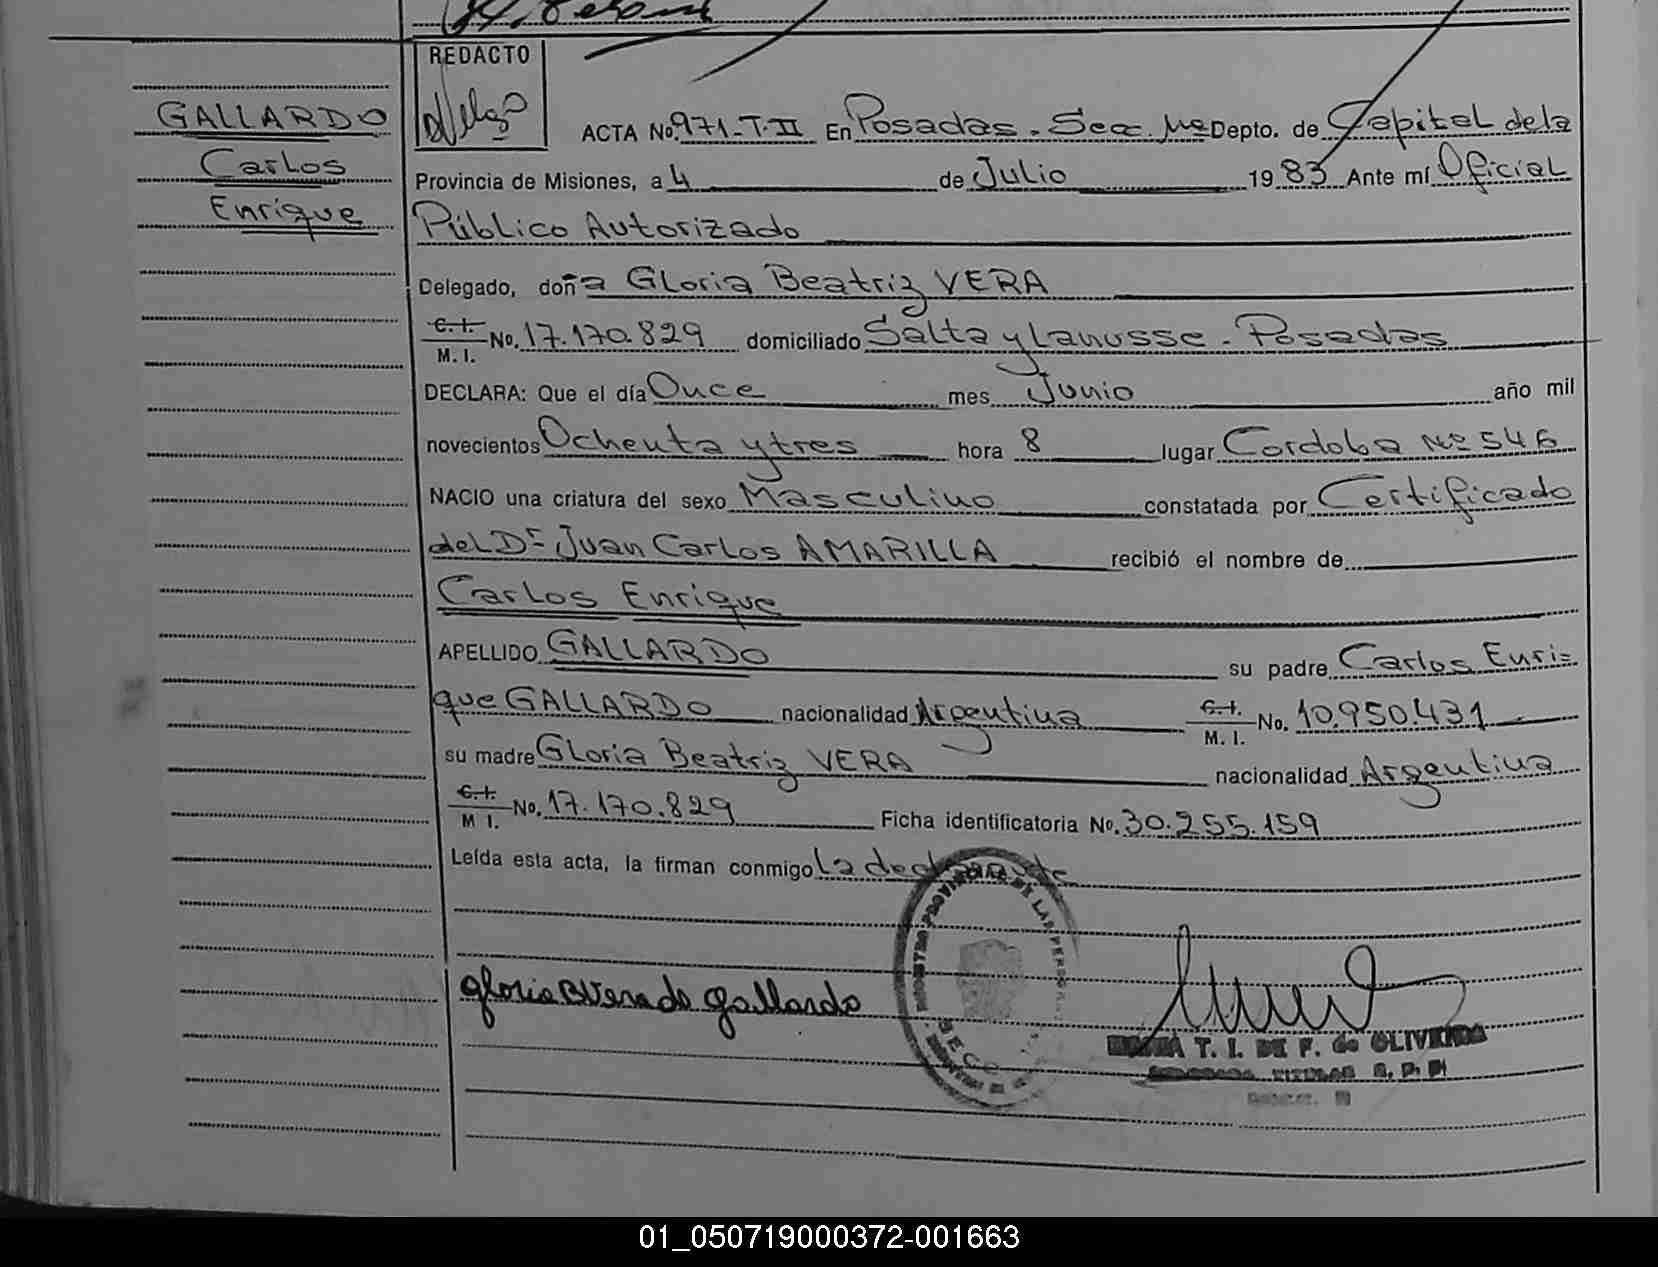 REDACTO
GALLARDO
Carlos
Enrique
ACTA No. 971-T-II En Posadas - Secc. 1ra Depto. de Capital de la
Provincia de Misiones, a 4 de Julio 1983 Ante mí Oficial
Público Autorizado
Delegado, doña Gloria Beatriz VERA
C.I. M. I. No. 17.170.829 domiciliado Salta y Lanusse - Posadas
DECLARA: Que el día Once mes Junio año mil
novecientos Ochenta y tres hora 8 lugar Cordoba Nº 546
NACIO una criatura del sexo Masculino constatada por Certificado
del Dr Juan Carlos AMARILLA recibió el nombre de
Carlos Enrique
APELLIDO GALLARDO su padre Carlos Enri=
que GALLARDO nacionalidad Argentina C.I. M. I. No. 10.950.431
su madre Gloria Beatriz VERA nacionalidad Argentina
C.I. M I. No. 17.170.829 Ficha identificatoria No. 30.255.159
Leída esta acta, la firman conmigo la declarante
gloria B Vera de gallardo
REGISTRO PROVINCIAL DE LAS PERSONAS
T. I. DE F. de OLIVEIRA
TITULAR R. P. P.
01_050719000372-001663